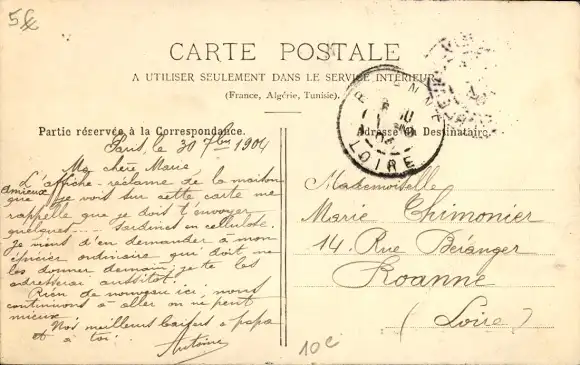 5€
CARTE POSTALE
A UTILISER SEULEMENT DANS LE SERVICE INTÉRIEUR
(France, Algérie, Tunisie).
Partie réservée à la Correspondance.
Paris, le 30 7bre 1904
Ma chère Marie
L'affiche-réclame de la maison
Amieux
que je vois sur cette carte me
rappelle que je dois t'envoyer
quelques .... sardines en cellulose.
Je viens d'en demander à mon
épicier ordinaire qui doit me
les donner demain, je te les
adresserai aussitôt.
Rien de nouveau ici, nous
continuons à aller on ne peut
mieux.
Nos meilleurs baisers à papa
et à toi.
Antoine
Adresse du Destinataire.
LOIRE
Mademoiselle
Marie Chimonier
14. Rue Béranger
Roanne
(Loire)
10€